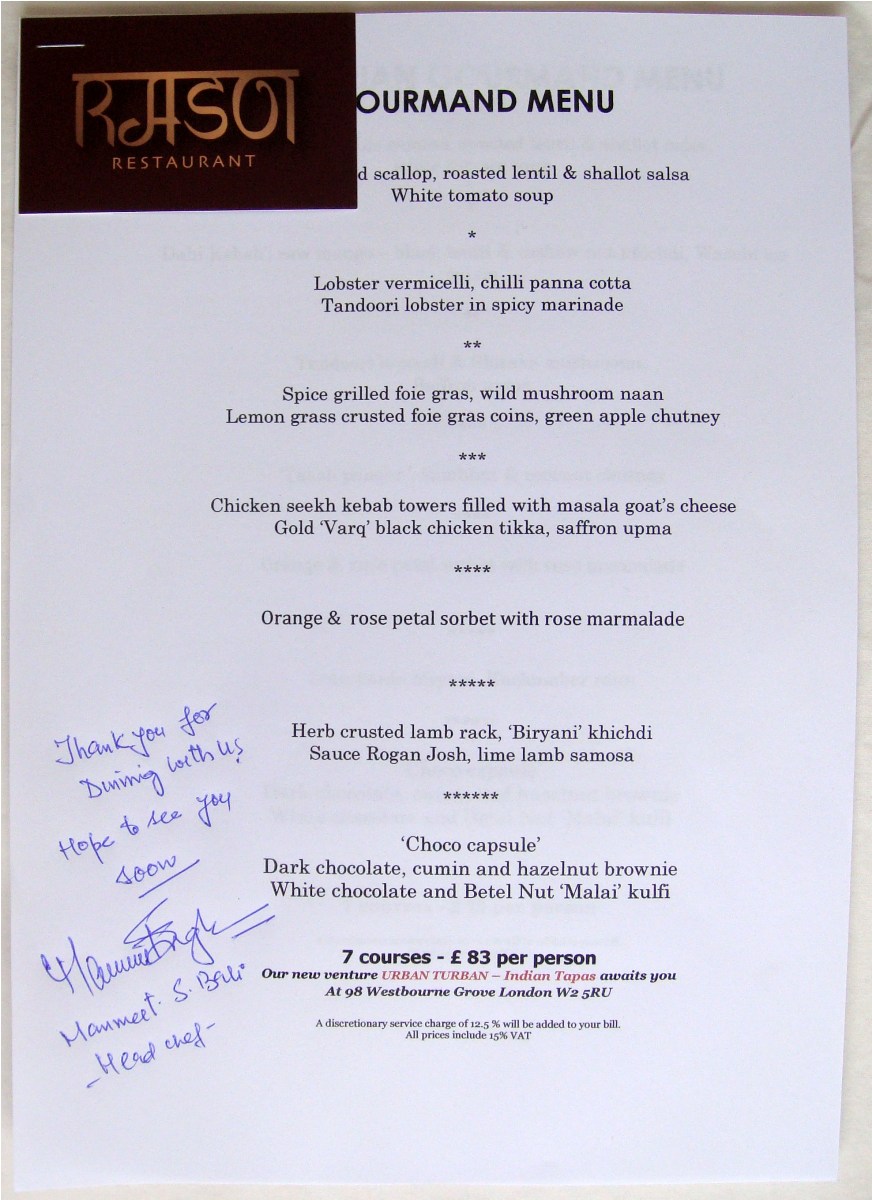 RASOI
RESTAURANT
OURMAND MENU
d scallop, roasted lentil & shallot salsa
White tomato soup
*
Lobster vermicelli, chilli panna cotta
Tandoori lobster in spicy marinade
**
Spice grilled foie gras, wild mushroom naan
Lemon grass crusted foie gras coins, green apple chutney
***
Chicken seekh kebab towers filled with masala goat’s cheese
Gold ‘Varq’ black chicken tikka, saffron upma
****
Orange & rose petal sorbet with rose marmalade
*****
Herb crusted lamb rack, ‘Biryani’ khichdi
Sauce Rogan Josh, lime lamb samosa
******
‘Choco capsule’
Dark chocolate, cumin and hazelnut brownie
White chocolate and Betel Nut ‘Malai’ kulfi
7 courses - £ 83 per person
Our new venture URBAN TURBAN – Indian Tapas awaits you
At 98 Westbourne Grove London W2 5RU
A discretionary service charge of 12.5 % will be added to your bill.
All prices include 15% VAT
Thank you for
Dinning with us
Hope to see you
soon
Manmeet. S. Bali
- Head chef -